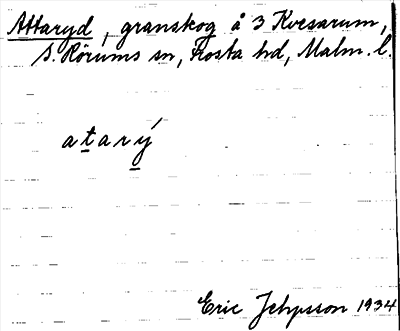 Attaryd, granskog å 3 Kvesarum,
S. Rörums sn, Frosta hd, Malm. l.
a t a r ý
Eric Jehpsson 1934